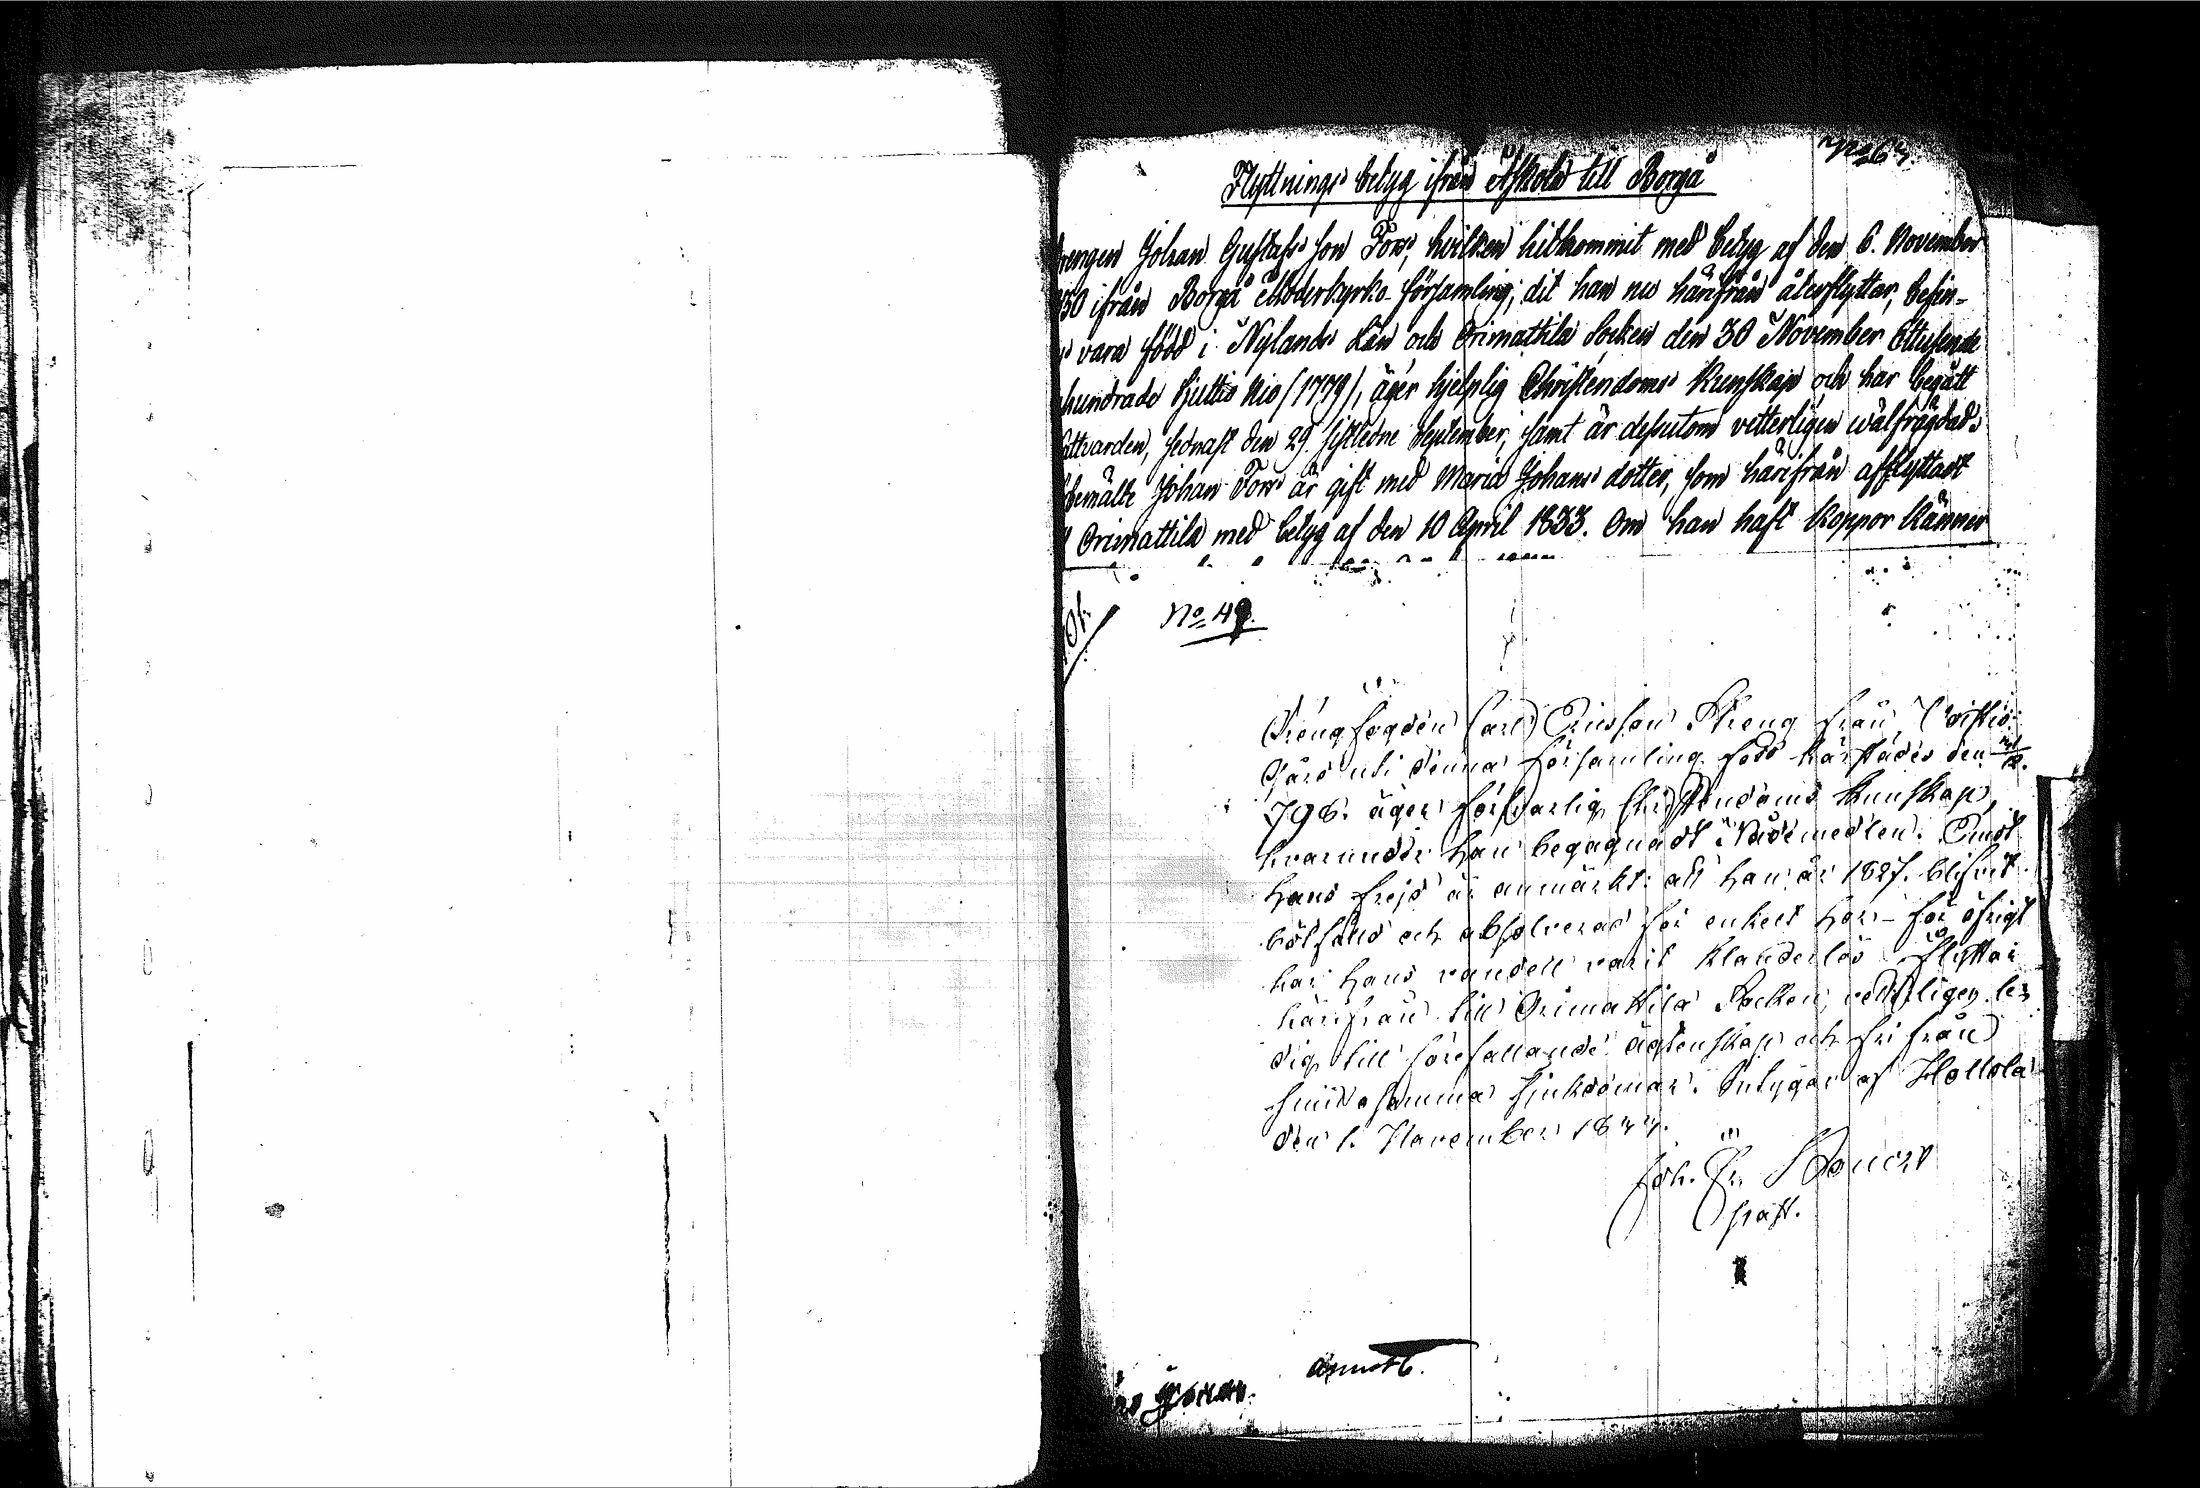 No 63.
Flyttnings betyg ifrån Askola till Borgå
rengen Johan Gustafs son Fors, hvilken hitkommit med betyg af den 6. November
830 ifrån Borgå Moderkyrko-församling, dit han nu härifrån återflyttar, befin-
s vara född i Nylands Län och Orimattila Socken den 30 November Ettusende
hundrade Sjuttio Nio (1779), äger hjelplig Christendoms Kunskap och har begått
attvarden, sednast den 29. sistledne September, samt är dessutom vetterligen wälfrägdad.
bemälte Johan Fors är gift med Maria Johans dotter, som härifrån afflyttadt
l Orimattila med betyg af den 10 April 1833. Om han haft Koppor känner
101.
No 49.
Drengfogden Carl Ericsson Skreng från
Gård uti denna församling född härstädes den
796. äger försvarlig Christendoms kunskap,
hvarunder han begagnadt Nådemedlen. Emot
hans frejd är anmärkt: att han år 1827. blifvit
bötfälld och absolverad för enkelt hor - för öfrigt
har hans vandel varit klanderlös. Flyttar
härifrån till Orimattila Socken, vetterligen le-
dig till förefallande ägtenskap och fri från
smittosamma sjukdomar. Intygar af Hollola
den 1. November 1833.
Joh. Fr.
past.
annoth.